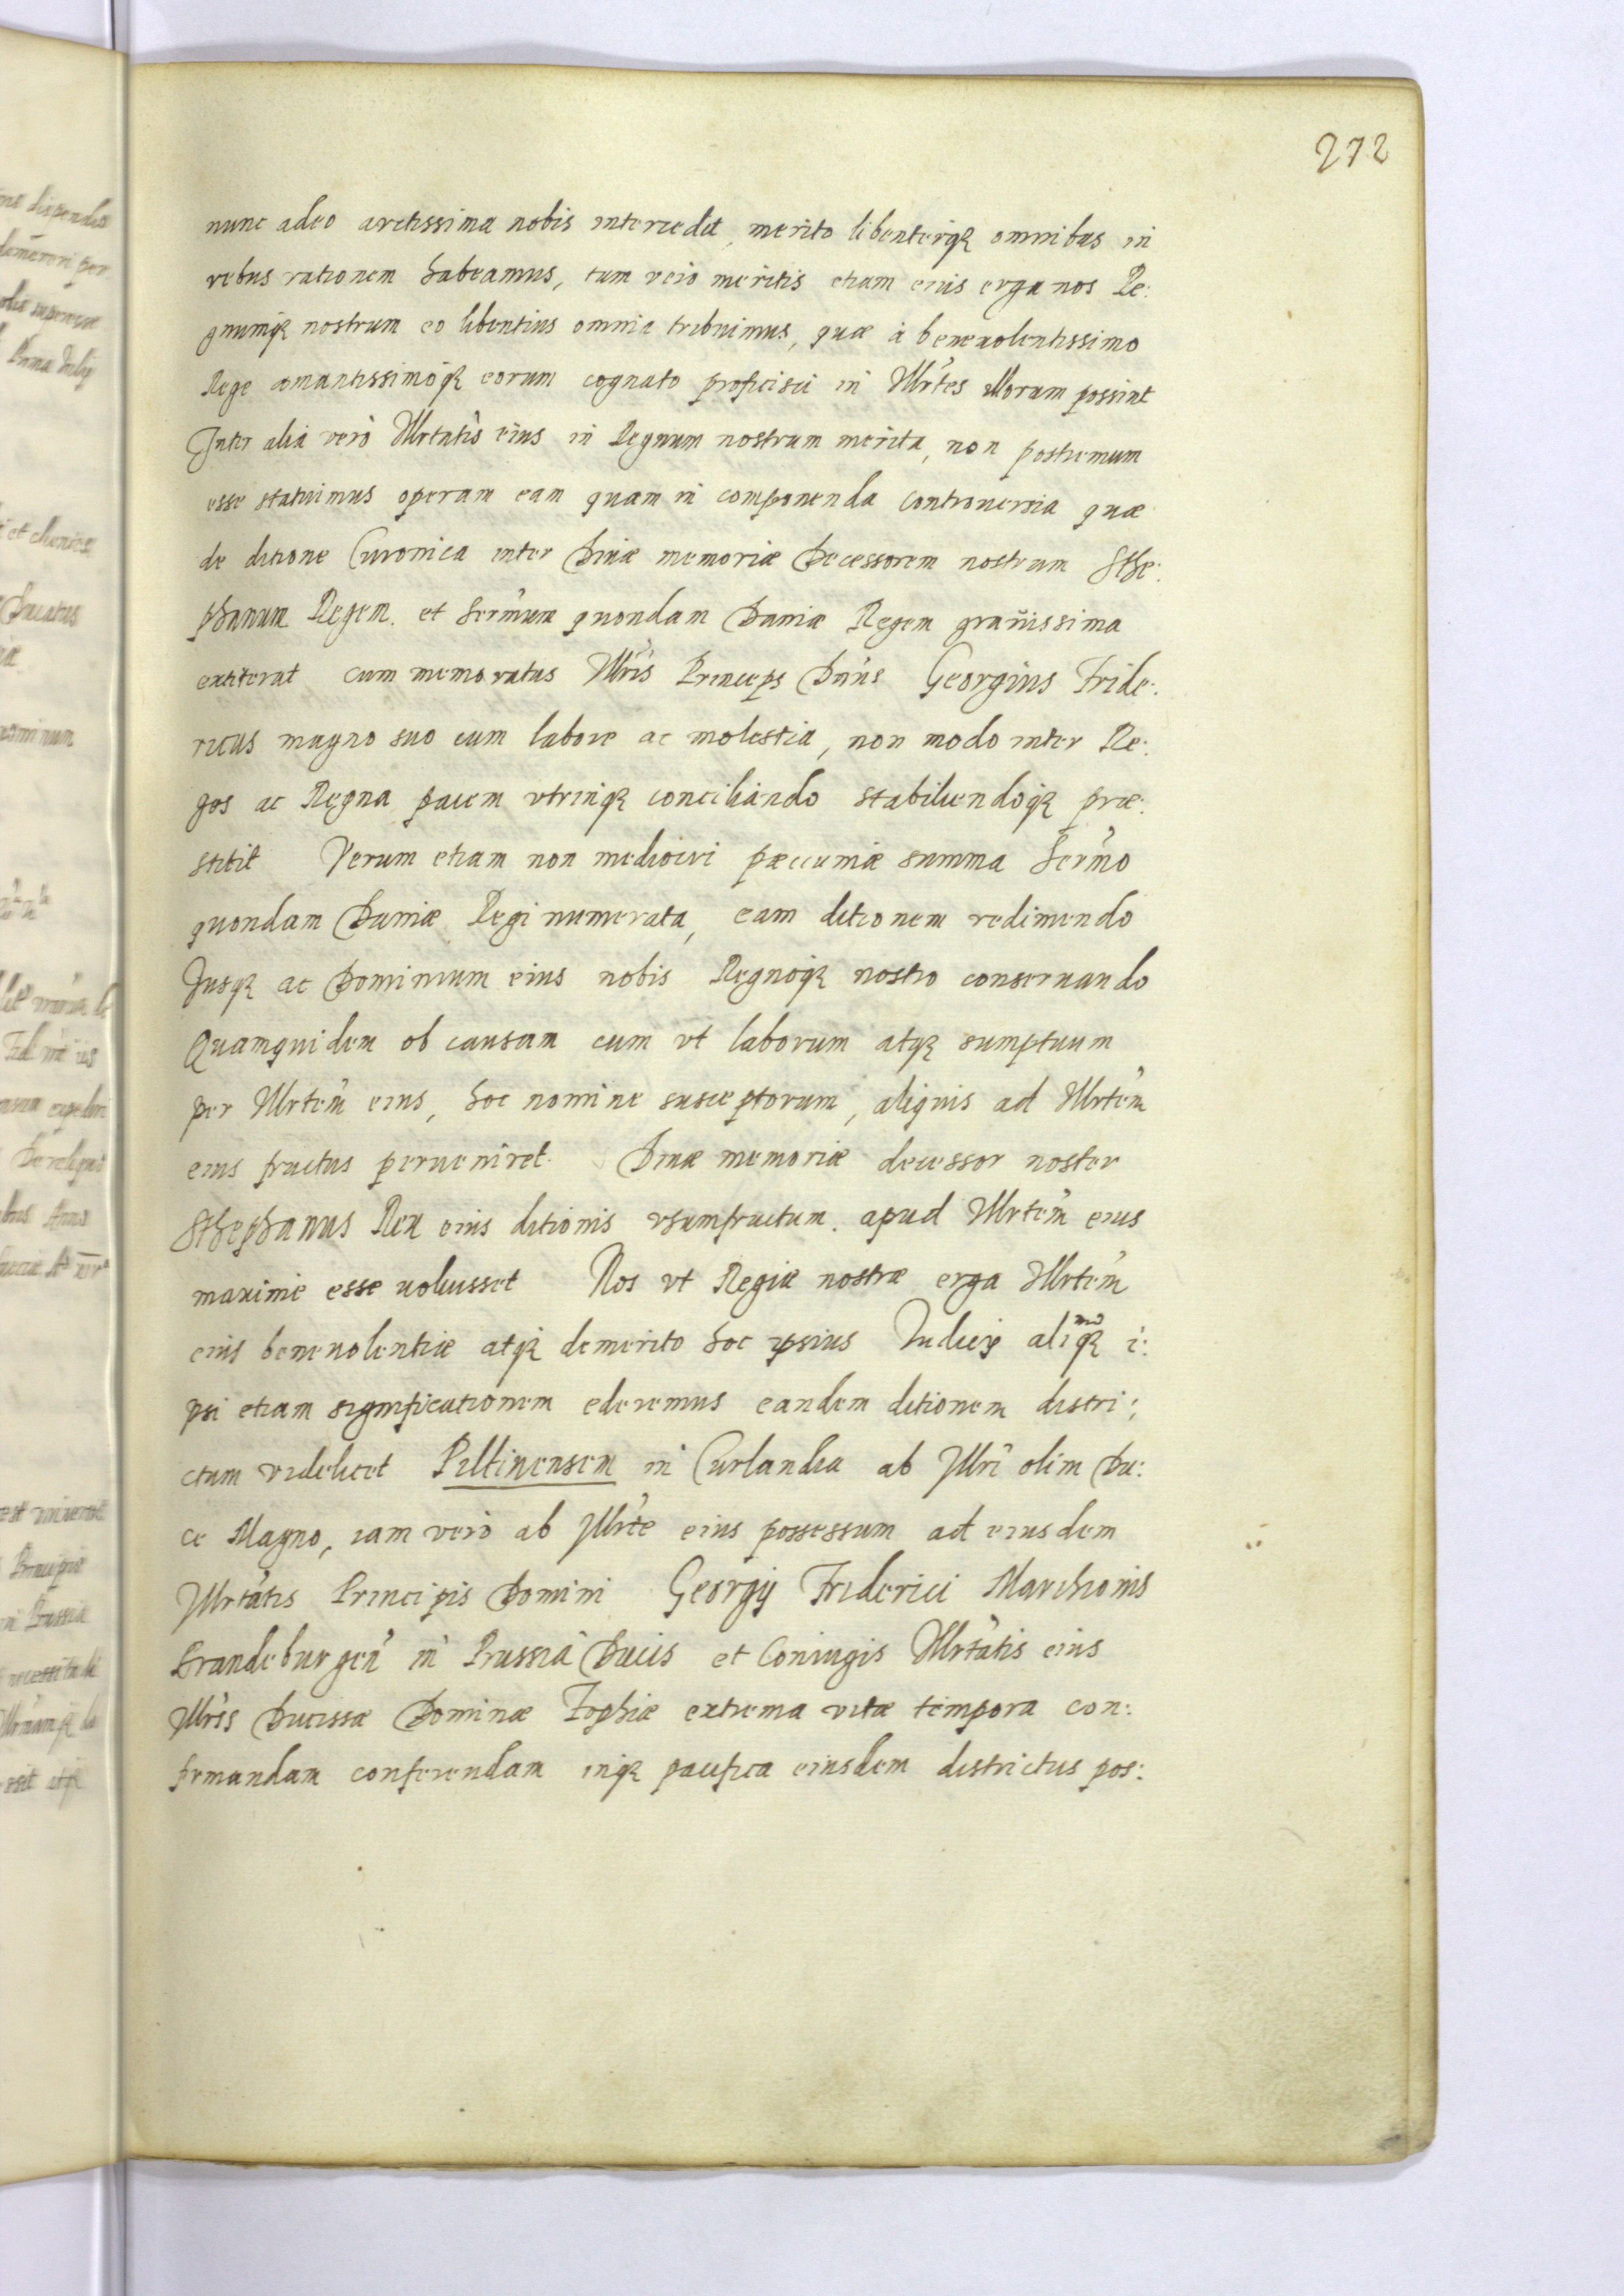 272
nunc adeo arctissima nobis intercedit, merito libenterq omnibus in
rebus rationem habeamus, tum vero meritis etiam eius erga nos Re:
gnumq nostrum eo libentius omnia tribuimus, quæ à beneuolentissimo
Rege amantissimoq eorum cognato proficisci in Illrtes illorum possint
Inter alia verò Illrtatis eius in Regnum nostrum merita, non postremum
esse statuimus operam eam quam in componenda controuersia quæ
de ditione Curonica inter Diuæ memoriæ Decessorem nostrum Sthe:
phanum Regem. et Sermum quondam Daniæ Regem grauissima
extiterat cum memoratus Illris Princeps Dnus Georgius Fride:
ricus magno suo cum labore ac molestia, non modo inter Re:
ges ac Regna pacem vtrinq conciliando stabiliendoq præ:
stitit Verum etiam non mediocri pæcuniæ summa Sermo
quondam Daniæ Regi numerata, eam ditionem redimendo
Jusq ac Dominium eius nobis Regnoq nostro conseruando
Quamquidem ob causam cum vt laborum atq sumptuum
per Illrtem eius, hoc nomine susceptorum, aliquis ad Illrtem
eius fructus perueniret. Diuæ memoriæ decessor noster
Sthephanus Rex eius ditionis vsumfructum. apud Illrtem eius
maxime esse voluisset Nos vt Regiæ nostræ erga Illrtem
eius beneuolentiæ atq demerito hoc ipsius Iudicij aliqm i:
psi etiam significationem ederemus eandem ditionem distri:
ctum videlicet Piltinensem in Curlandia ab Illri olim Du:
ce Magno, iam verò ab Illrte eius possessum ad eiusdem
Illrtatis Principis Domini Georgij Friderici Marchionis
Brandeburgen in Prussia Ducis et Coniugis Illrtatis eius
Illris Ducissæ Dominæ Sophiæ extrema vitæ tempora con:
firmandam conferendam inq pacifica eiusdem districtus pos: